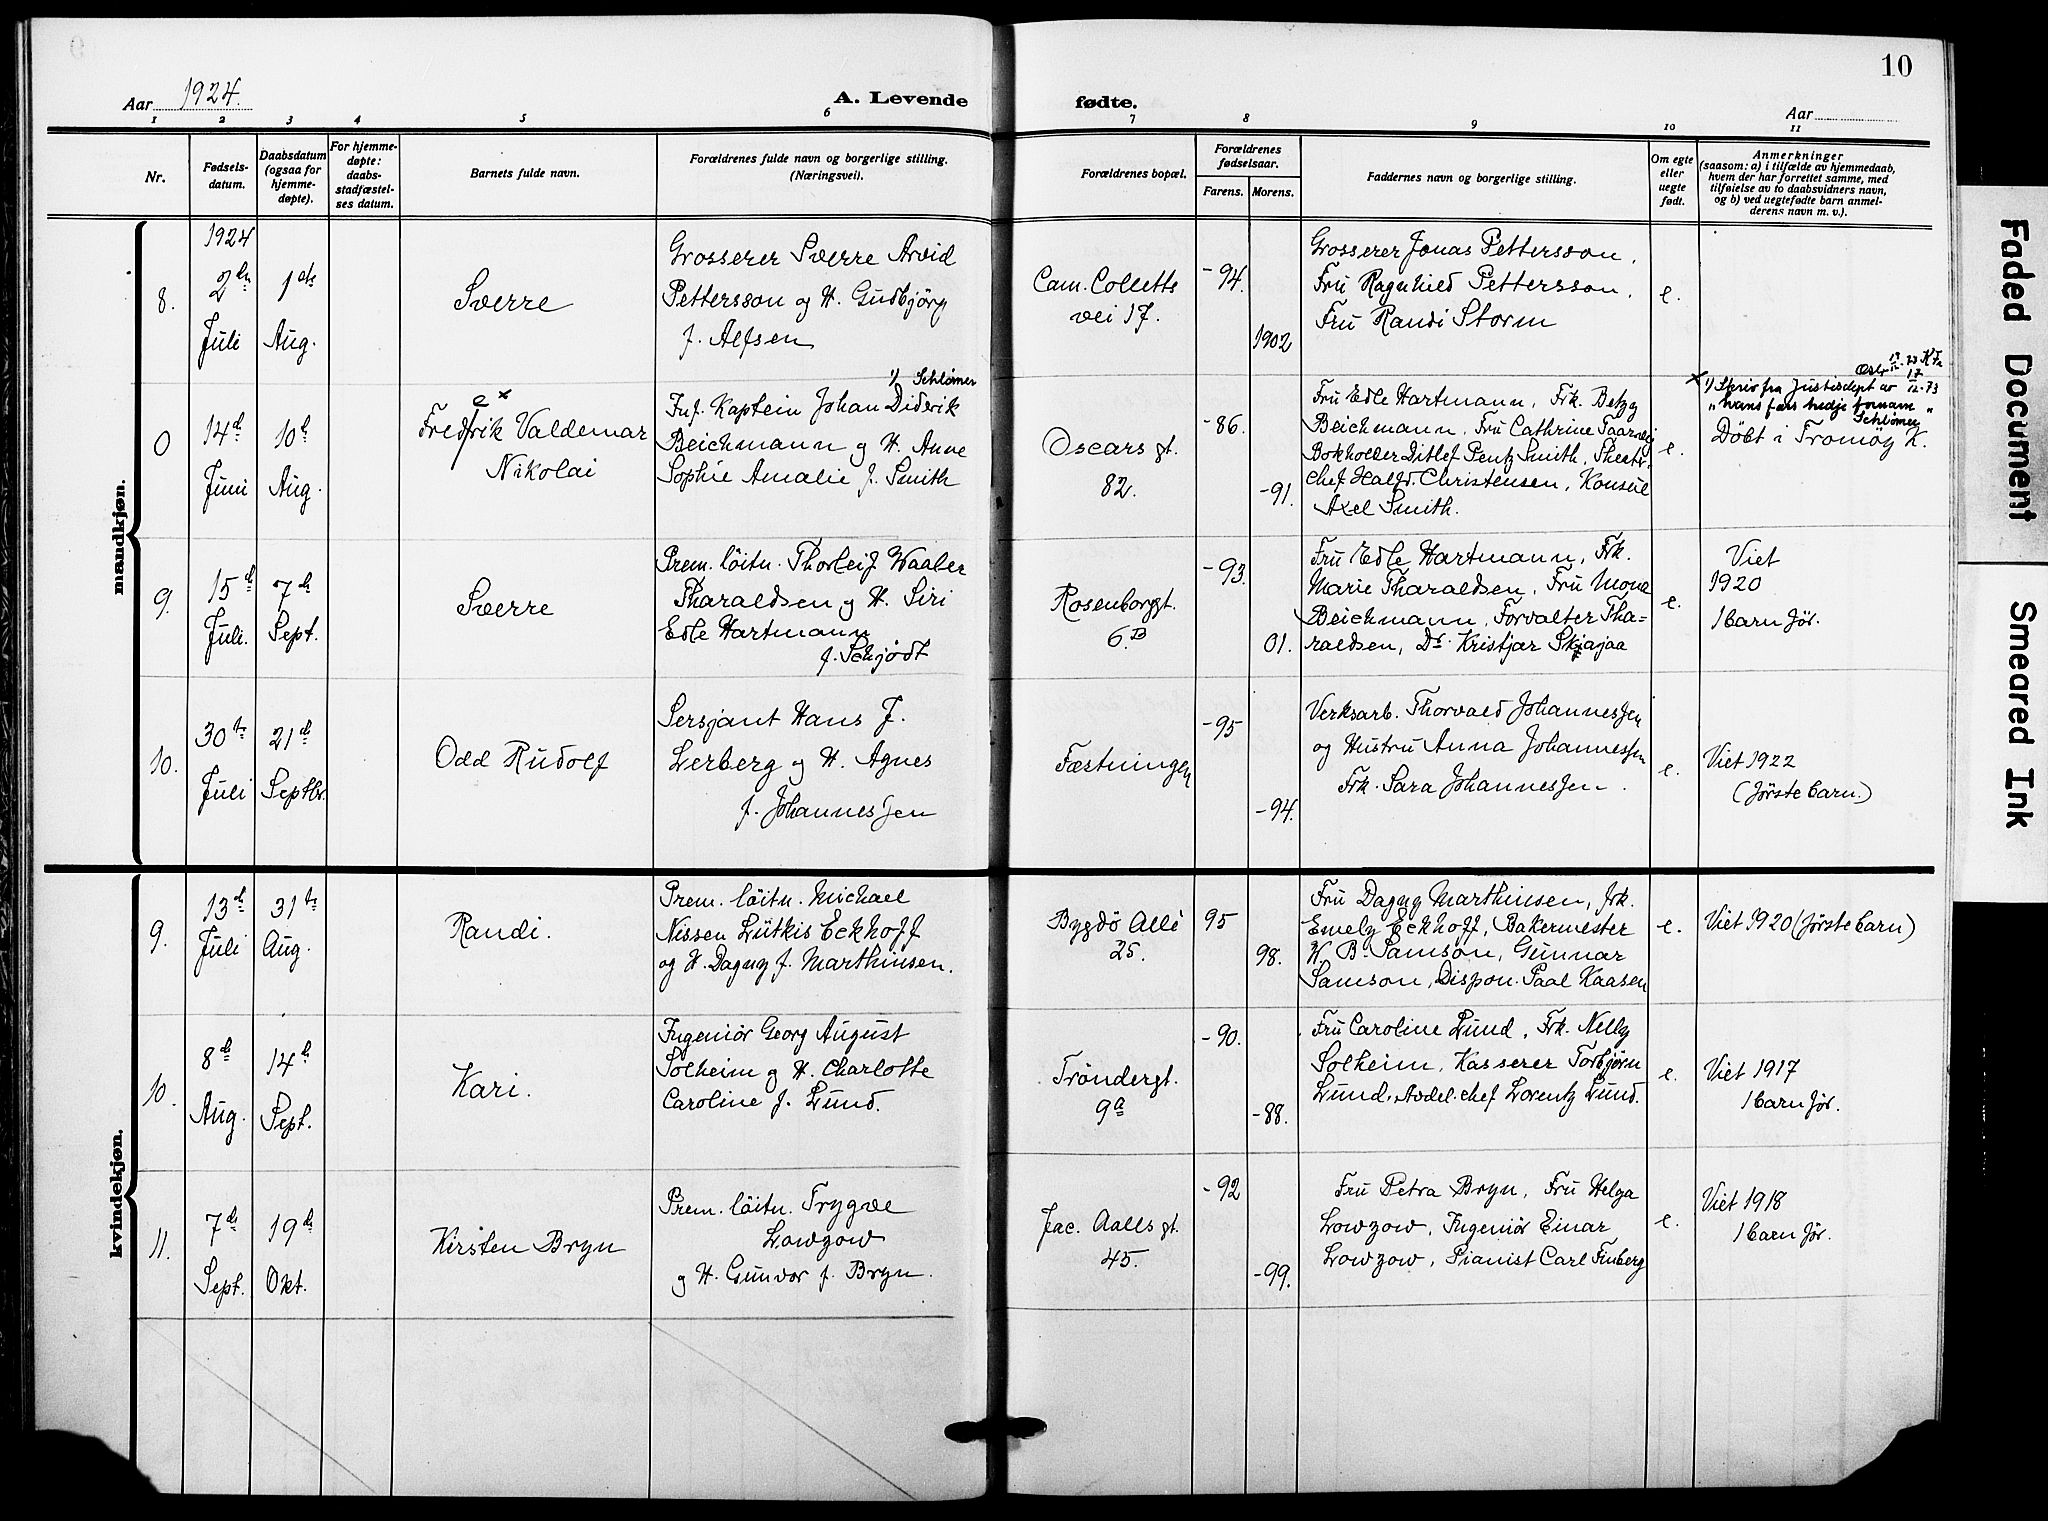 10
Aar 1924.
A. Levende fødte.
Aar
1 2 3 4 5 6 7 8 9 10 11
Nr.
Fødsels-
datum.
Daabsdatum
(ogsaa for
hjemme-
døpte).
For hjemme-
døpte:
daabs-
stadfæstel-
ses datum.
Barnets fulde navn.
Forældrenes fulde navn og borgerlige stilling.
(Næringsvei).
Forældrenes bopæl.
Forældrenes
fødselsaar.
Farens. Morens.
Faddernes navn og borgerlige stilling.
Om egte
eller
uegte
født.
Anmerkninger
(saasom: a) i tilfælde av hjemmedaab,
hvem der har forrettet samme, med
tilføielse av to daabsvidners navn,
og b) ved uegtefødte barn anmel-
derens navn m. v.).
mandkjøn.
8.
1924
2den
Juli
1ste
Aug.
Sverre
Grosserer Sverre Arvid
Pettersson og H. Gudbjörg
f. Alfsen
Cam. Colletts
vei 17.
-94.
1902
Grosserer Jonas Pettersson,
Fru Ragnhild Pettersson,
Fru Randi Storm
e.
0
14de
Juni
10de
Aug.
e x
Fredrik Valdemar
Nikolai
1) Schlømer
Inf. Kaptein Johan Diderik
Beichmann og H. Anne
Sophie Amalie f. Smith
Oscars gt.
82.
-86.
-91.
Fru Edle Hartmann, Frk. Betzy
Beichmann, Fru Cathrine Taarvig
Bokholder Ditlef Pentz Smith, Theatr.
chef Halfd. Christensen, Konsul
Axel Smith.
e.
x 1) Skriv fra Justisdept av 17/12-73
"hans fars tredje fornavn"
Schlømer
Döbt i Tromöy K.
9.
15de
Juli.
7de
Sept.
Sverre
Prem. löitn. Thorleif Waaler
Tharaldsen og H. Siri
Edle Hartmann
f. Schjödt
Rosenborggt.
6B
-93.
01.
Fru Edle Hartmann, Frk.
Marie Tharaldsen, Fru Mona
Beichmann, Forvalter Tha=
raldsen, Dr. Kristjar Skajaa
e.
Viet
1920
1 barn för.
10.
30te
Juli
21de
Septbr.
Odd Rudolf
Sersjant Hans F.
Lerberg og H. Agnes
f. Johannessen
Fæstningen
-95
-94.
Verksarb. Thorvald Johannessen
og Hustru Anna Johannessen
Frk. Sara Johannessen.
e.
Viet 1922
(förste barn.)
kvindekjøn.
9.
13de
Juli
31te
Aug.
Randi.
Prem. löitn. Michael
Nissen Lütkis Eckhoff
og H. Dagny f. Marthinsen.
Bygdö Allé
25.
95
98.
Fru Dagny Marthinsen, frk.
Emely Eckhoff, Bakermester
W. B. Samson, Gunnar
Samson, Dispon. Paal Kaasen
e.
Viet 1920 (förste barn)
10.
8de
Aug.
14de
Sept.
Kari.
Ingeniör Georg August
Solheim og H. Charlotte
Caroline f. Lund.
Tröndergt.
9a
-90.
-88.
Fru Caroline Lund, Frk. Nelly
Solheim, Kasserer Torbjörn
Lund, Avdel. chef Lorentz Lund.
e.
Viet 1917
1 barn för.
11.
7de
Sept.
19de
Okt.
Kirsten Bryn
Prem. löitn. Trygve
Lowzow
og H. Gunvor f. Bryn.
Jac. Aalls gt.
45.
-92
-99.
Fru Petra Bryn, Fru Helga
Lowzow, Ingeniör Einar
Lowzow, Pianist Carl
e.
Viet 1918
1 barn för.
Faded Document
Smeared Ink